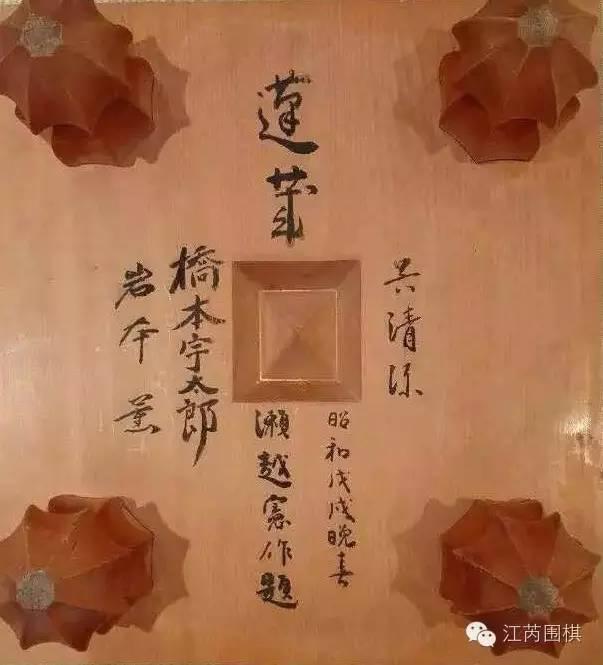 吴清源
昭和戊戌晚春
瀬越憲作題
橋本宇太郎
岩本薫
江芮围棋